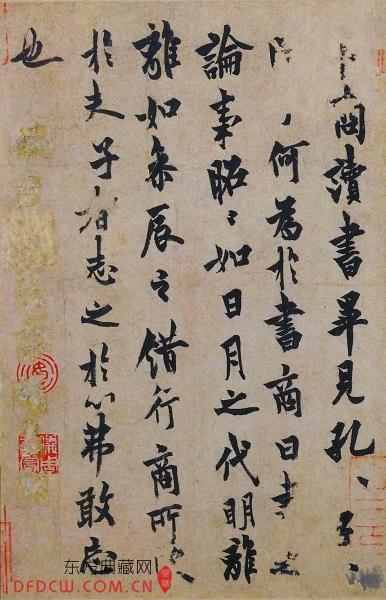 商讀書畢見孔、子、
何為於書商曰書
論事昭〻如日月之代明離
離如參辰之錯行商所
於夫子者志之於心弗敢忘
也
东方典藏网
DFDCW.COM.CN